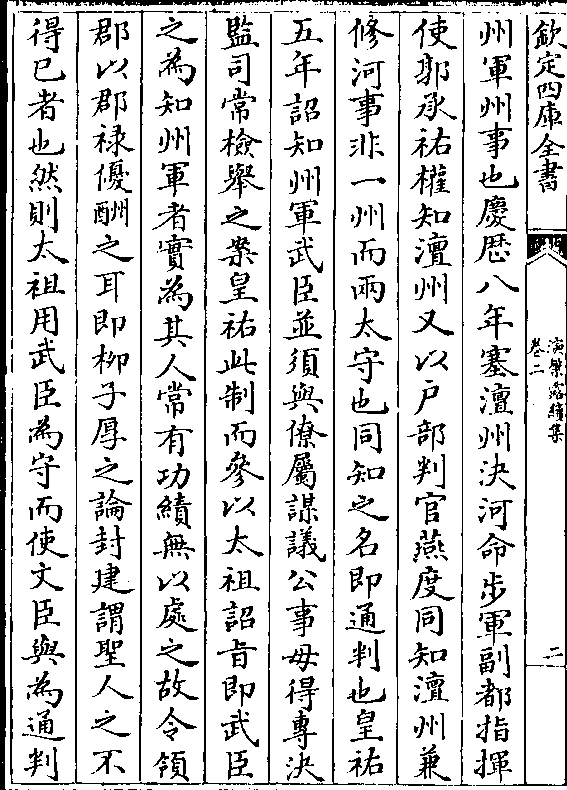 欽定四庫全書
演繁露續集
卷二
二
州軍州事也慶厯八年塞澶州決河命步軍副都指揮
使郭承祐權知澶州又以户部判官燕度同知澶州兼
修河事非一州而兩太守也同知之名即通判也皇祐
五年詔知州軍武臣並須與僚屬謀議公事毋得專決
監司常檢舉之案皇祐此制而參以太祖詔旨即武臣
之為知州軍者實為其人常有功績無以處之故令領
郡以郡禄優酬之耳即柳子厚之論封建謂聖人之不
得已者也然則太祖用武臣為守而使文臣與為通判